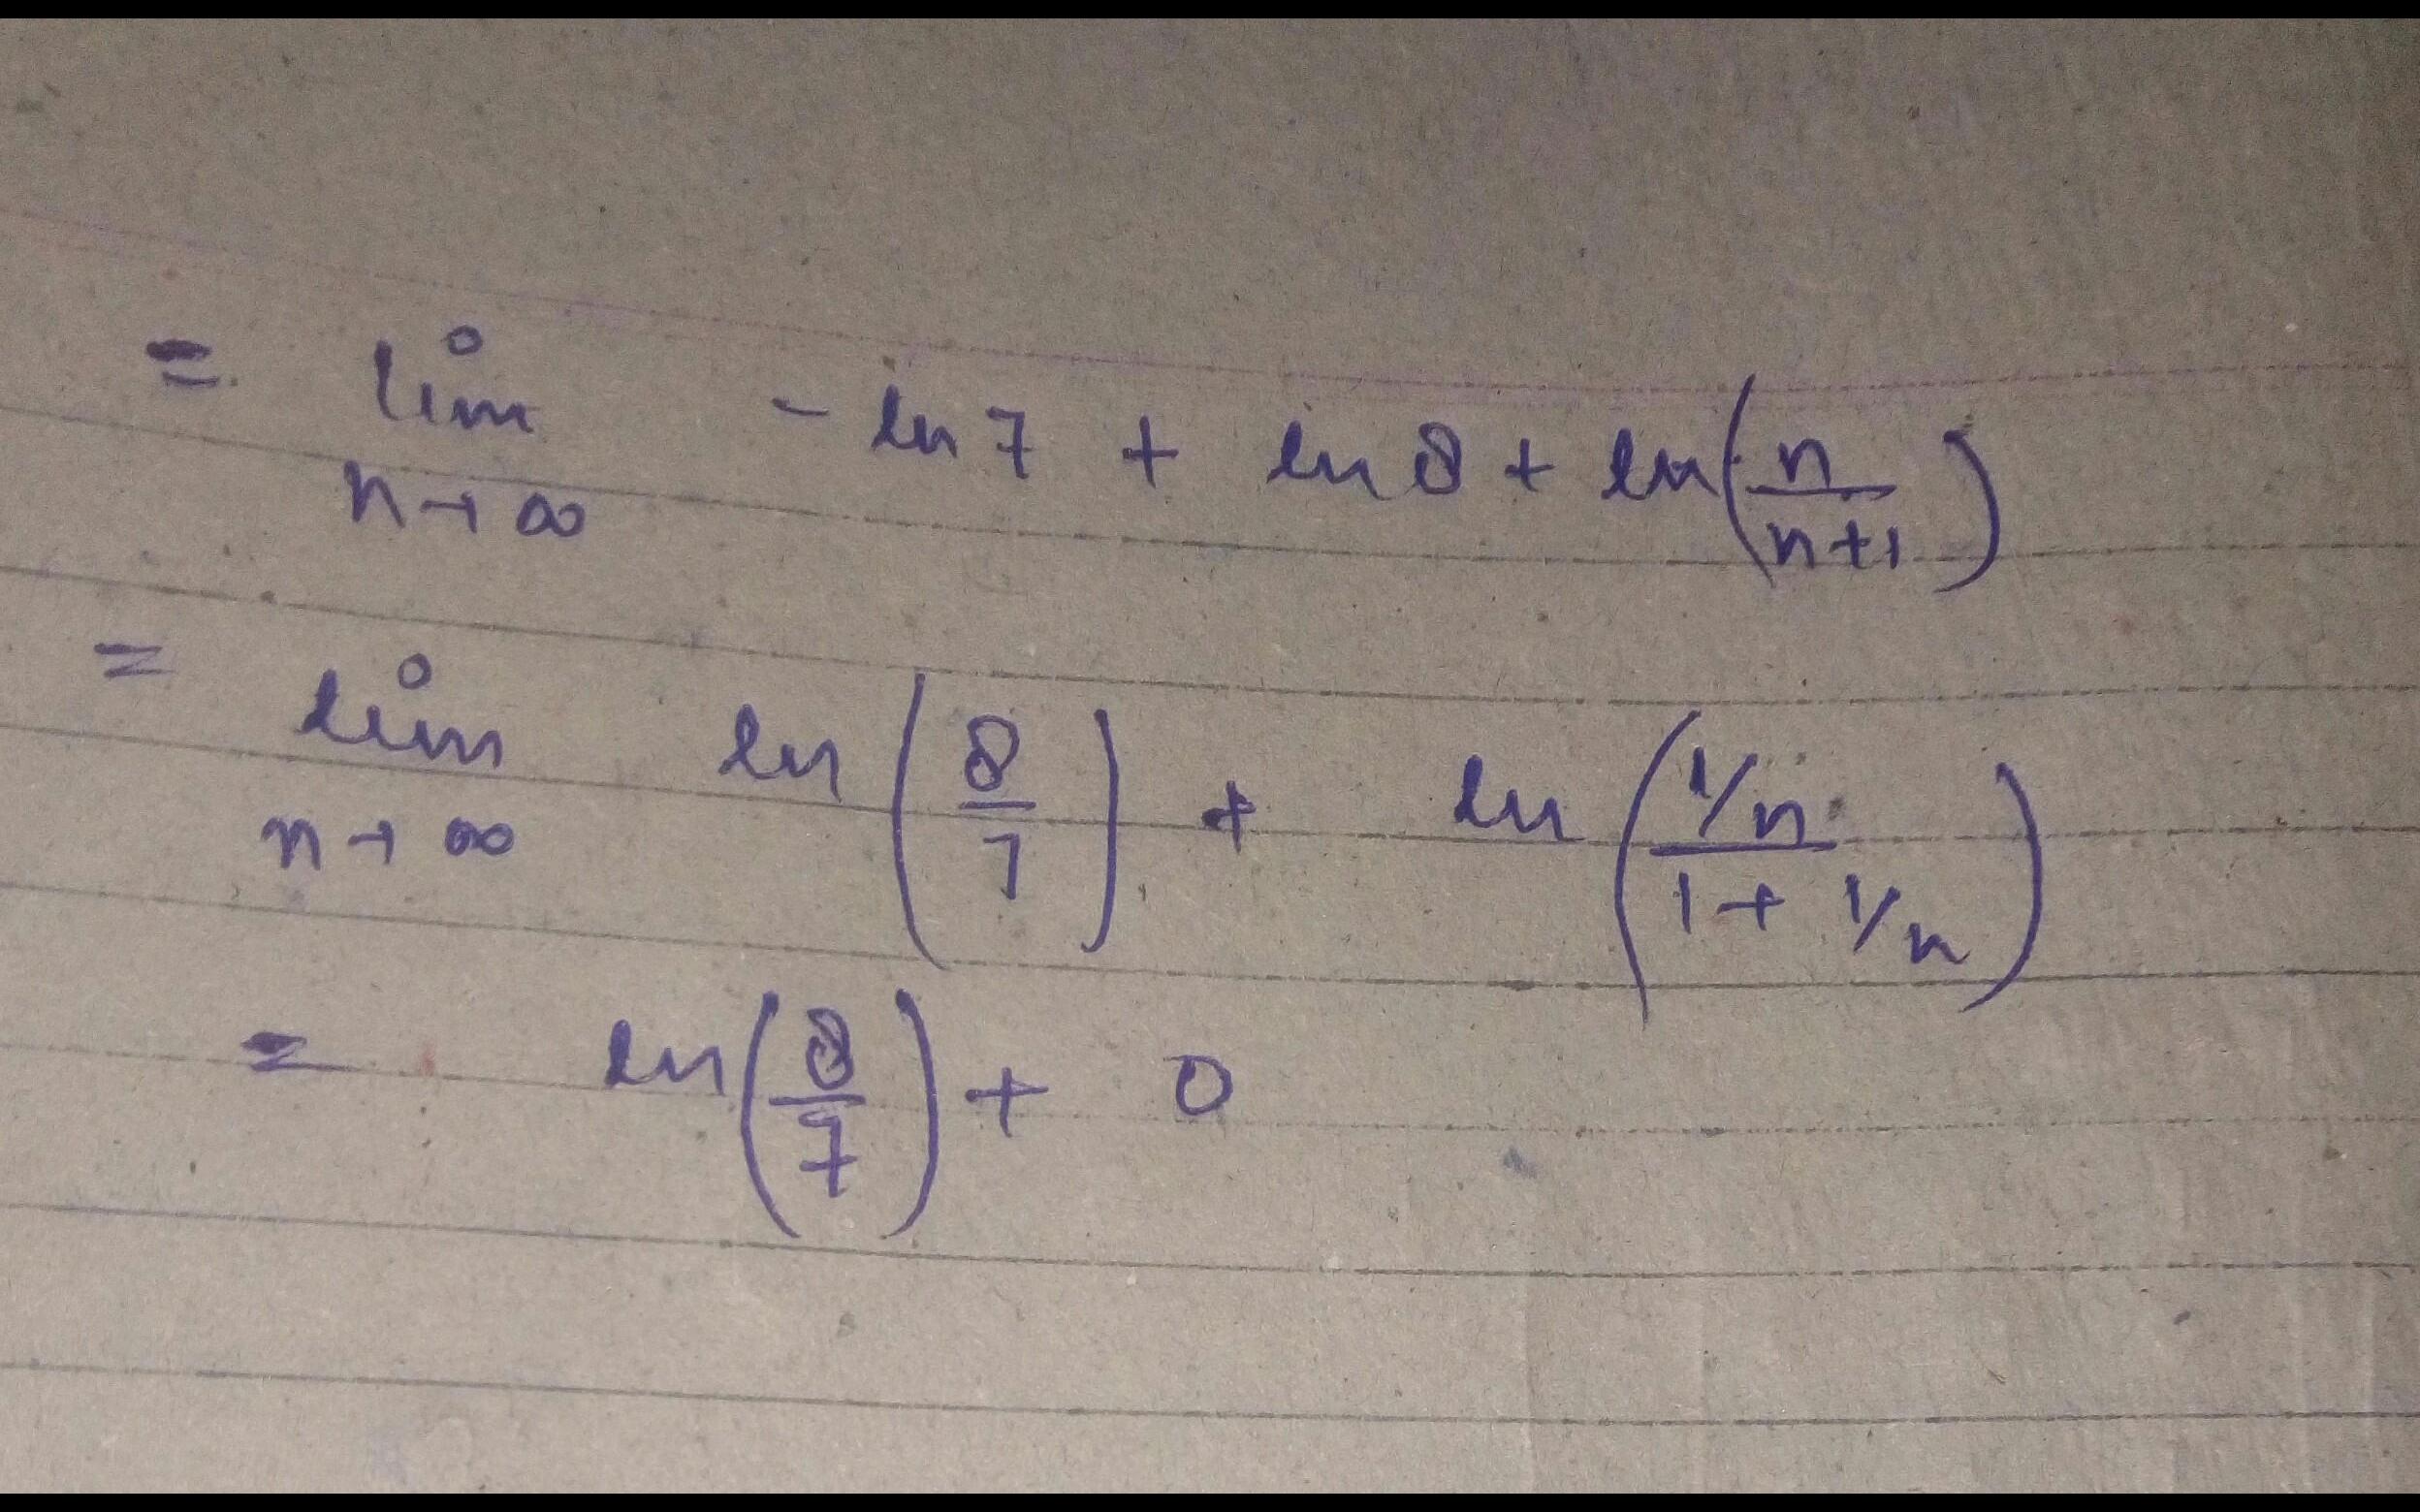 = lim n→∞ - ln 7 + ln 8 + ln(n/(n+1))
= lim n→∞ ln(8/7) + ln((1/n)/(1 + 1/n))
= ln(8/7) + 0